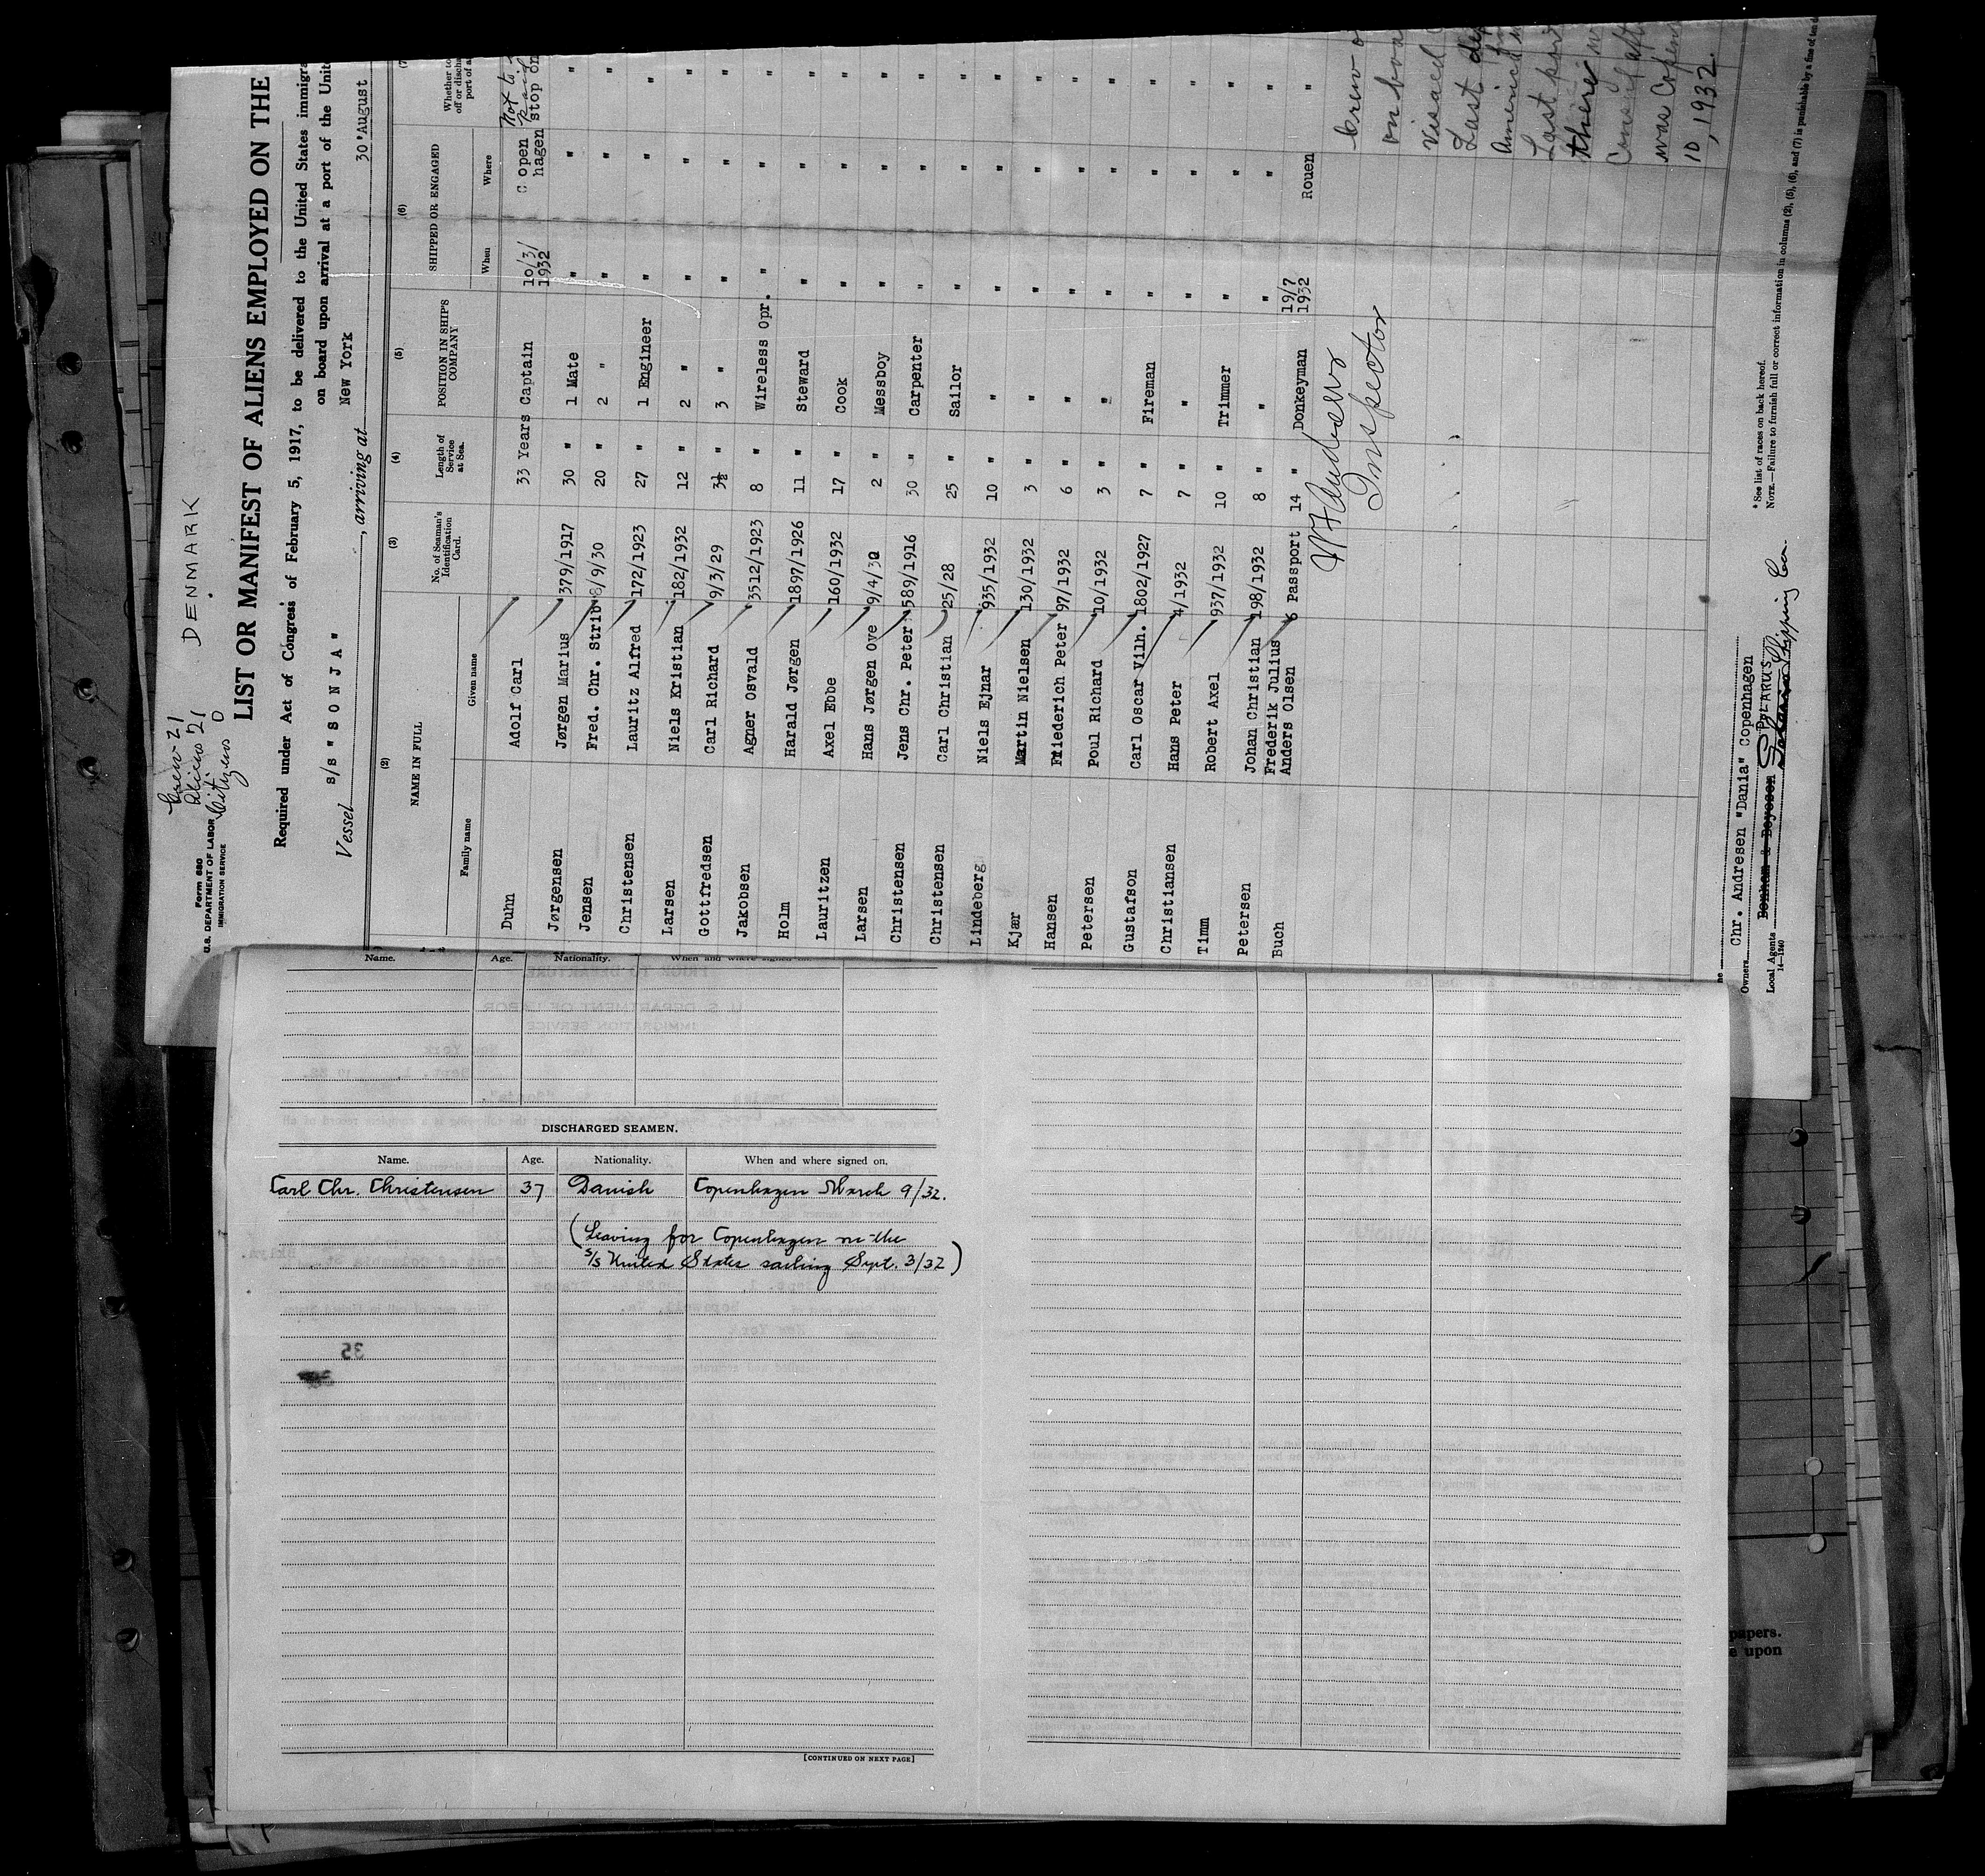 DENMARK
Crew 21
Aliens 21
Citizens 0
Form 680
U.S. DEPARTMENT OF LABOR
IMMIGRATION SERVICE
LIST OR MANIFEST OF ALIENS EMPLOYED ON THE
Required under Act of Congress of February 5, 1917, to be delivered to the United States
on board upon arrival at a port of the
Vessel s/s "SONJA", arriving at New York 30'August
(2) (3) (4) (5) (6)
NAME IN FULL
Family name Given name
No. of Seaman's Identification Card.
Length of Service at Sea.
POSITION IN SHIP'S COMPANY
SHIPPED OR ENGAGED
When Where
Whether to
off or
port of
Duhn Adolf Carl 33 Years Captain 10/3/ 1932 Copen hagen Not to stop on
Jørgensen Jørgen Marius 1379/1917 30 " 1 Mate " " "
Jensen Fred. Chr. Strib 8/9/30 20 " 2 " " " "
Christensen Lauritz Alfred 172/1923 27 " 1 Engineer " " "
Larsen Niels Kristian 182/1932 12 " 2 " " " "
Gottfredsen Carl Richard 9/3/29 3½ " 3 " " " "
Jakobsen Agner Osvald 3512/1923 8 " Wireless Opr. " " "
Holm Harald Jørgen 1897/1926 11 " Steward " " "
Lauritzen Axel Ebbe 160/1932 17 " Cook " " "
Larsen Hans Jørgen Ove 9/4/30 2 " Messboy " " "
Christensen Jens Chr. Peter 589/1916 30 " Carpenter " " "
Christensen Carl Christian 25/28 25 " Sailor " " "
Lindeberg Niels Ejnar 935/1932 10 " " " " "
Kjær Martin Nielsen 130/1932 3 " " " " "
Hansen Friederich Peter 97/1932 6 " " " " "
Petersen Poul Richard 10/1932 3 " " " " "
Gustafson Carl Oscar Vilh. 1802/1927 7 " Fireman " " "
Christiansen Hans Peter 4/1932 7 " " " " "
Timm Robert Axel 937/1932 10 " Trimmer " " "
Petersen Johan Christian 198/1932 8 " " " " "
Buch Frederik Julius Anders Olsen 6 Passport 14 " Donkeyman 19/7 1932 Rouen "
Inspector
Crew
on
visaed
Last
America
Last port
there
was
10, 1932.
Owners Chr. Andresen "Dania" Copenhagen
Local Agents
14—1240
* See list of races on back hereof.
NOTE.—Failure to furnish full or correct information in columns (2), (5), (6), and (7) is punishable by a fine of
Name. Age. Nationality. When and where signed on.
DISCHARGED SEAMEN.
Name. Age. Nationality. When and where signed on.
Carl Chr. Christensen 37 Danish Copenhagen March 9/32.
(Leaving for Copenhagen on the
s/s United States sailing Sept. 3/32)
35
[CONTINUED ON NEXT PAGE]
papers.
upon